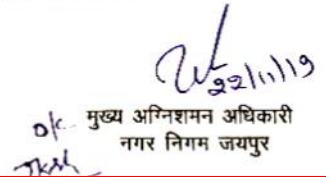 22/11/19
o/c मुख्य अग्निशमन अधिकारी
नगर निगम जयपुर